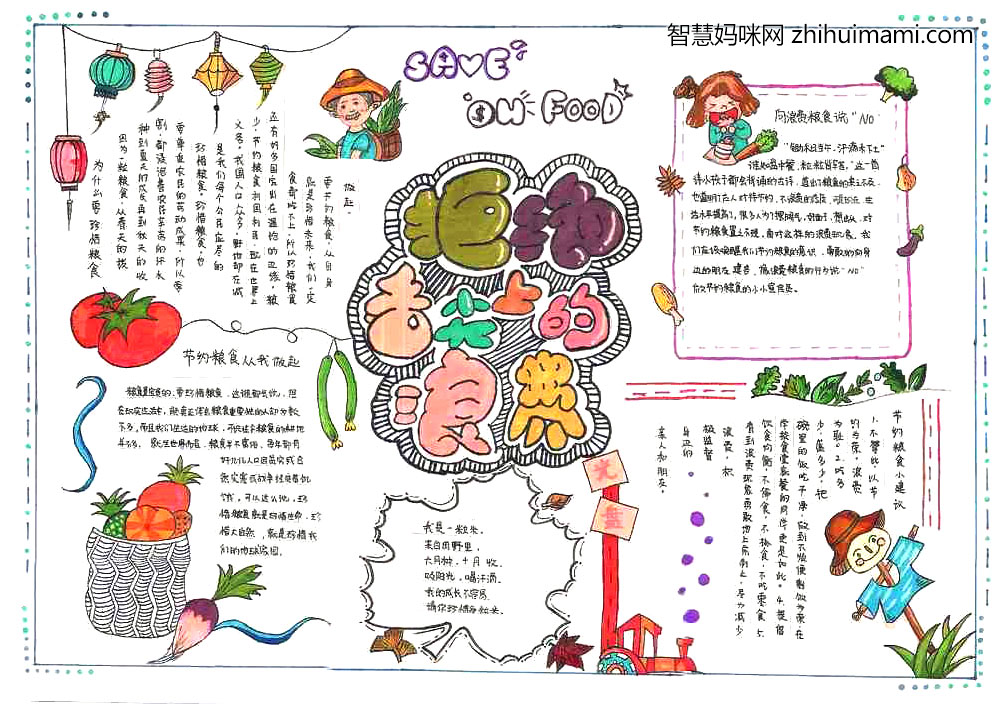 智慧妈咪网 zhihuimami.com
SAVE
ON FOOD
拒绝
舌尖上的
浪费
为什么要珍惜粮食
因为一粒粮食，从春天的播
种到夏天的成长再到秋天的收
割，都浸透着农民辛苦的汗水
要尊重农民的劳动成果，所以要
珍惜粮食。珍惜粮食，也
是我们每个公民应尽的
义务。我国人口众多，耕地却在减
少。节约粮食利国利民，现在世界上
还有好多国家出在温饱的边缘，粮
食都吃不上，所以珍惜粮食
就是珍惜未来，我们一定
要节约粮食，从自身
做起。
向浪费粮食说"NO"
"锄禾日当午，汗滴禾下土
谁知盘中餐，粒粒皆辛苦。"这一首
诗小孩子都会背诵的古诗，道出了粮食的来之不易，
也道明了古人对待节约，不浪费的态度，可现在 生
活水平提高了，很多人为了摆阔气，
节约粮食置之不理，面对这样的浪费现象，我
们应该唤醒我们节约粮食的意识，勇敢的向身
边的朋友 建步，像浪费粮食的行为说"NO"
做节约粮食的小小宣传员。
节约粮食从我做起
粮食是宝贵的，要珍惜粮食，这谁都会说，但
在现实生活中，能真正体会粮食重要性的人却为数
不多，而且我们生活的地球，可供注乡粮食的耕地
并不多。就全世界而言，粮食并不富裕，每年都有
好几亿人口因苗灾或各
类灾害或战争经受着饥
饿，可以这么说，珍
惜粮食就是珍惜生命，珍
惜大自然，就是珍惜我
们的地球家园。
我是一粒米，
来自田野里，
六月种，十月 收。
吸阳光，喝汗滴。
我的成长不容易，
请你珍惜每粒米。
光
盘
节约粮食小建议
1.不攀比，以节
约为荣，浪费
为耻。2.吃多
少，盛多少，把
碗里的饭吃干净，做到不随便剩饭为荣；在
学校食堂就餐的同学更是如此。4.提倡
饮食均衡，不偏食，不挑食，不吃零食。5.
看到浪费现象勇敢地上前制止，尽力减少
浪费。积
极监督
身边的
亲人和朋友。